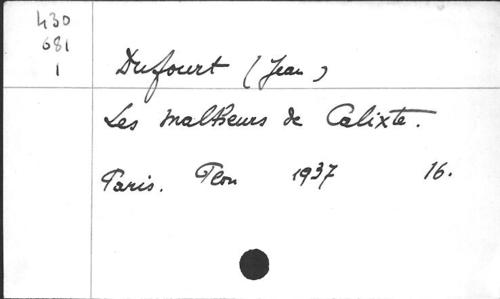 430
681
1
Dufourt (Jean)
Les Malheurs de Calixte.
Paris. Plon 1937 16.